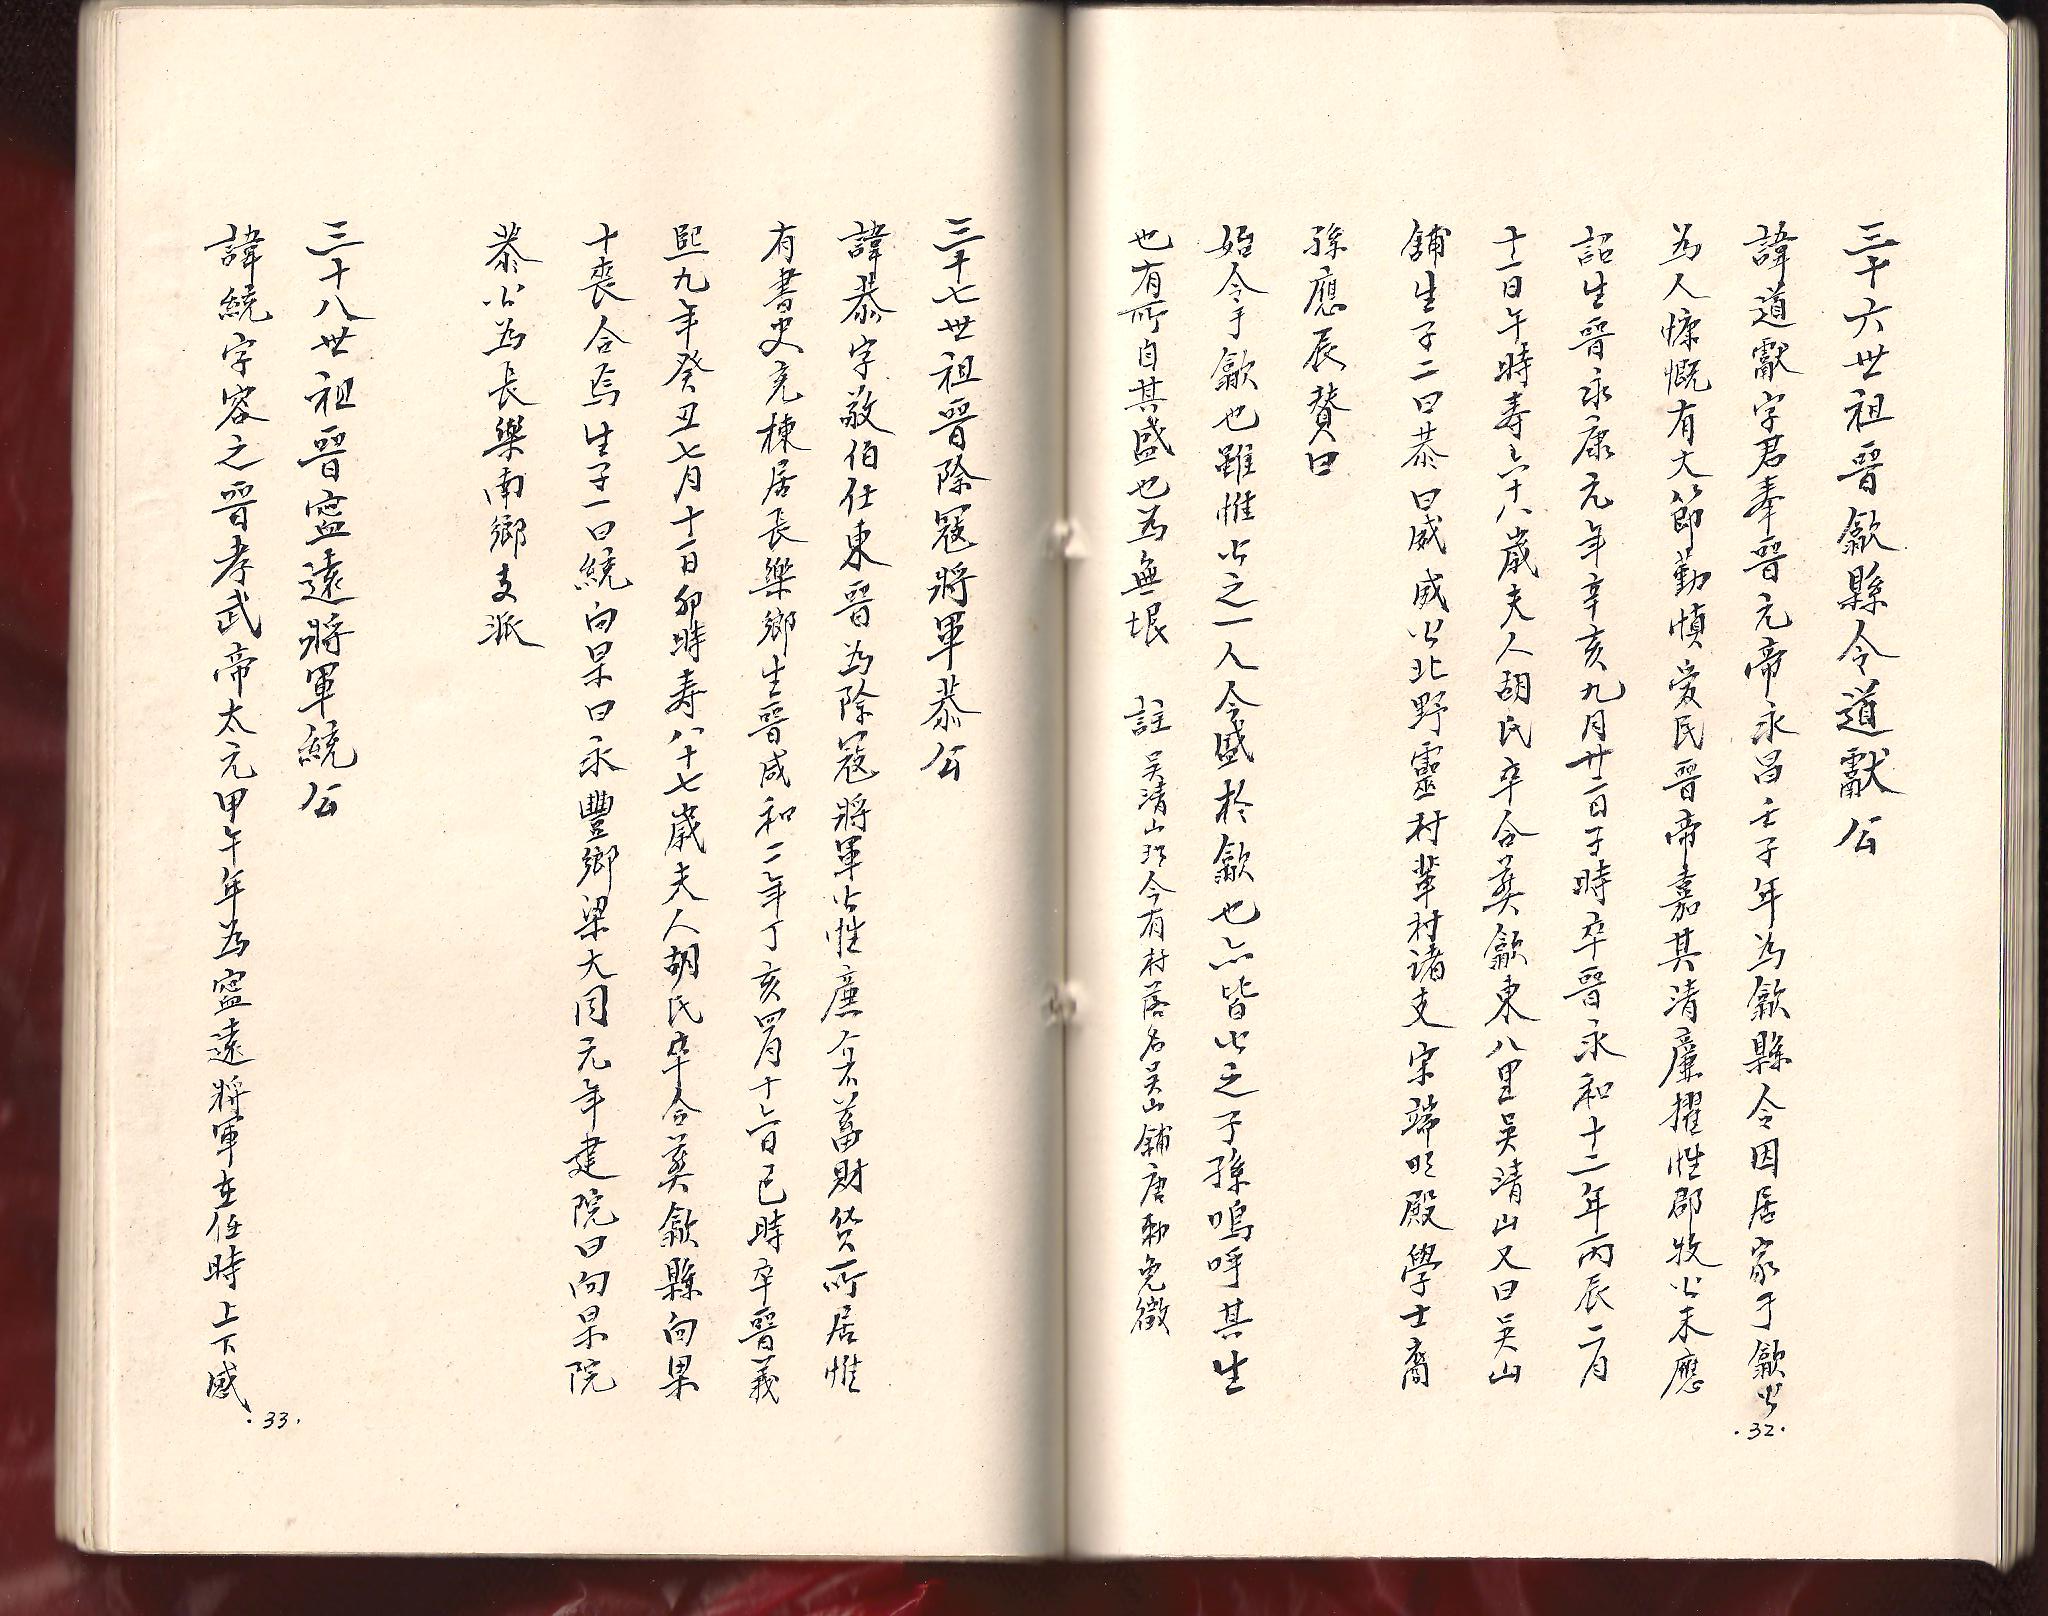 三十六世祖晉歙縣令道獻公
諱道獻字君奉晉元帝永昌壬子年為歙縣令因居家于歙公
為人慷慨有大節勤慎愛民晉帝嘉其清廉擢牲郡牧公未應
詔生晉永康元年辛亥九月廿一日子時卒晉永和十二年丙辰二月
十一日午時寿六十八歲夫人胡氏卒合葬歙東八里吳清山又曰吳山
舖生子二曰恭曰威威公北野靈村葦村諸支宋端明殿學士裔
孫應辰贊曰
始令于歙也雖惟公之一人今盛於歙也亦皆公之子孫嗚呼其生
也有所自其盛也為無垠 註吳清山現今有村落名吳山舖唐勅免徵
·32·
三十七世祖晉除寇將軍恭公
諱恭字敬伯仕東晉為除寇將軍公性廉介不蓄財货所居惟
有書史充棟居長樂鄉生晉咸和二年丁亥四月十六日巳時卒晉義
熙九年癸丑七月十一日卯時寿八十七歲夫人胡氏卒合葬歙縣向杲
十喪合焉生子一曰繞向杲曰永豐鄉梁大同元年建院曰向杲院
恭公為長樂南鄉支派
三十八世祖晉寍遠將軍繞公
諱繞字容之晉孝武帝太元甲午年為寍遠將軍在任時上下感
·33·